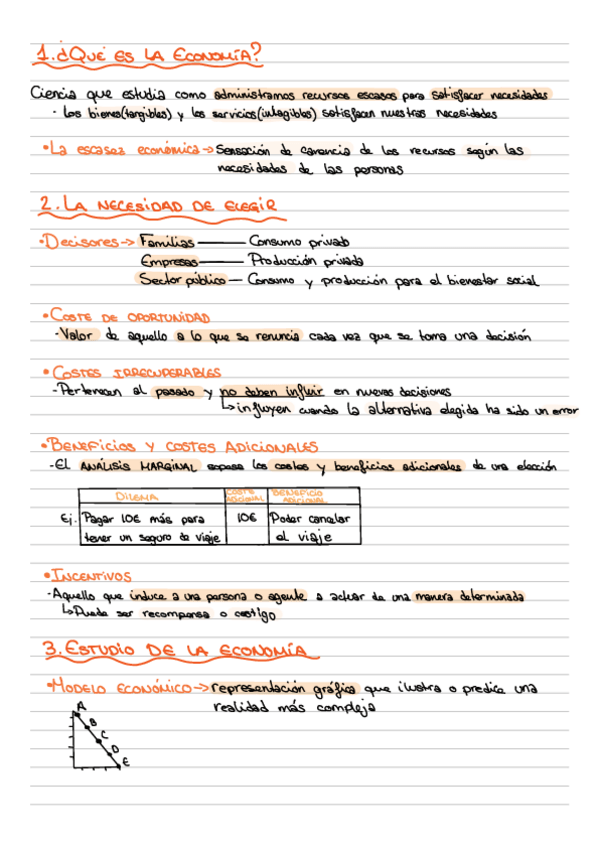 1. ¿QUÉ ES LA ECONOMÍA?
Ciencia que estudia como administramos recursos escasos para satisfacer necesidades
· Los bienes(tangibles) y los servicios(intagibles) satisfacen nuestras necesidades
• La escasez económica → Sensación de carencia de los recursos según las
necesidades de las personas
2. LA NECESIDAD DE ELEGIR
• Decisores → Familias — Consumo privado
Empresas — Producción privada
Sector público — Consumo y producción para el bienestar social
• COSTE DE OPORTUNIDAD
- Valor de aquello a lo que se renuncia cada vez que se toma una decisión
• COSTES IRRECUPERABLES
- Pertenecen al pasado y no deben influir en nuevas decisiones
↳ influyen cuando la alternativa elegida ha sido un error
• BENEFICIOS Y COSTES ADICIONALES
- El ANÁLISIS MARGINAL expone los costes y beneficios adicionales de una elección
DILEMA COSTE ADICIONAL BENEFICIO ADICIONAL
Ej. Pagar 10€ más para 10€ Poder cancelar
tener un seguro de viaje el viaje
• INCENTIVOS
- Aquello que induce a una persona o agente a actuar de una manera determinada
↳ Puede ser recompensa o castigo
3. ESTUDIO DE LA ECONOMÍA
• MODELO ECONÓMICO → representación gráfica que ilustra o predice una
realidad más compleja
A
B
C
D
E